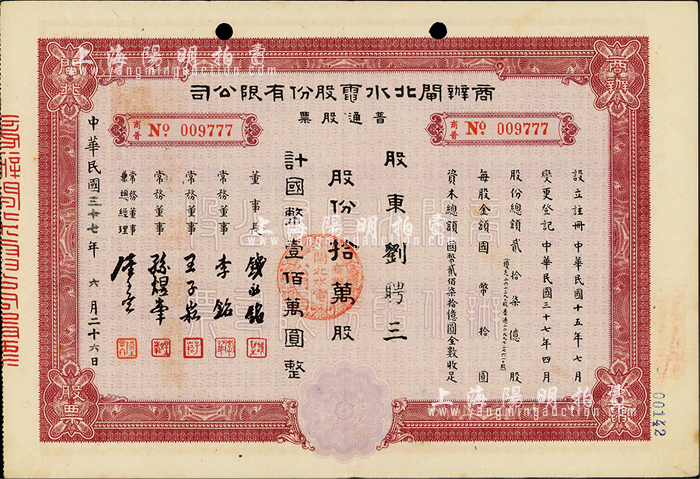 上海陽明拍賣
www.yangmingauction.com
商辦
閘北
商辦閘北水電股份有限公司
普通股票
商普 № 009777
商普 № 009777
設立註冊 中華民國十五年七月
變更登記 中華民國三十七年四月
股份總額貳拾柒億股
每股金額國幣拾圓
資本總額國幣貳佰柒拾億圓全數收足
股東 劉聘三
股份拾萬股
計國幣壹佰萬圓整
董事長
常務董事 李銘
常務董事 王子崧
常務董事 孫煜峯
常務董事兼總經理
中華民國三十七年 六月二十六日
上海陽明拍賣
www.yangmingauction.com
上海陽明拍賣
www.yangmingauction.com
股票
00142